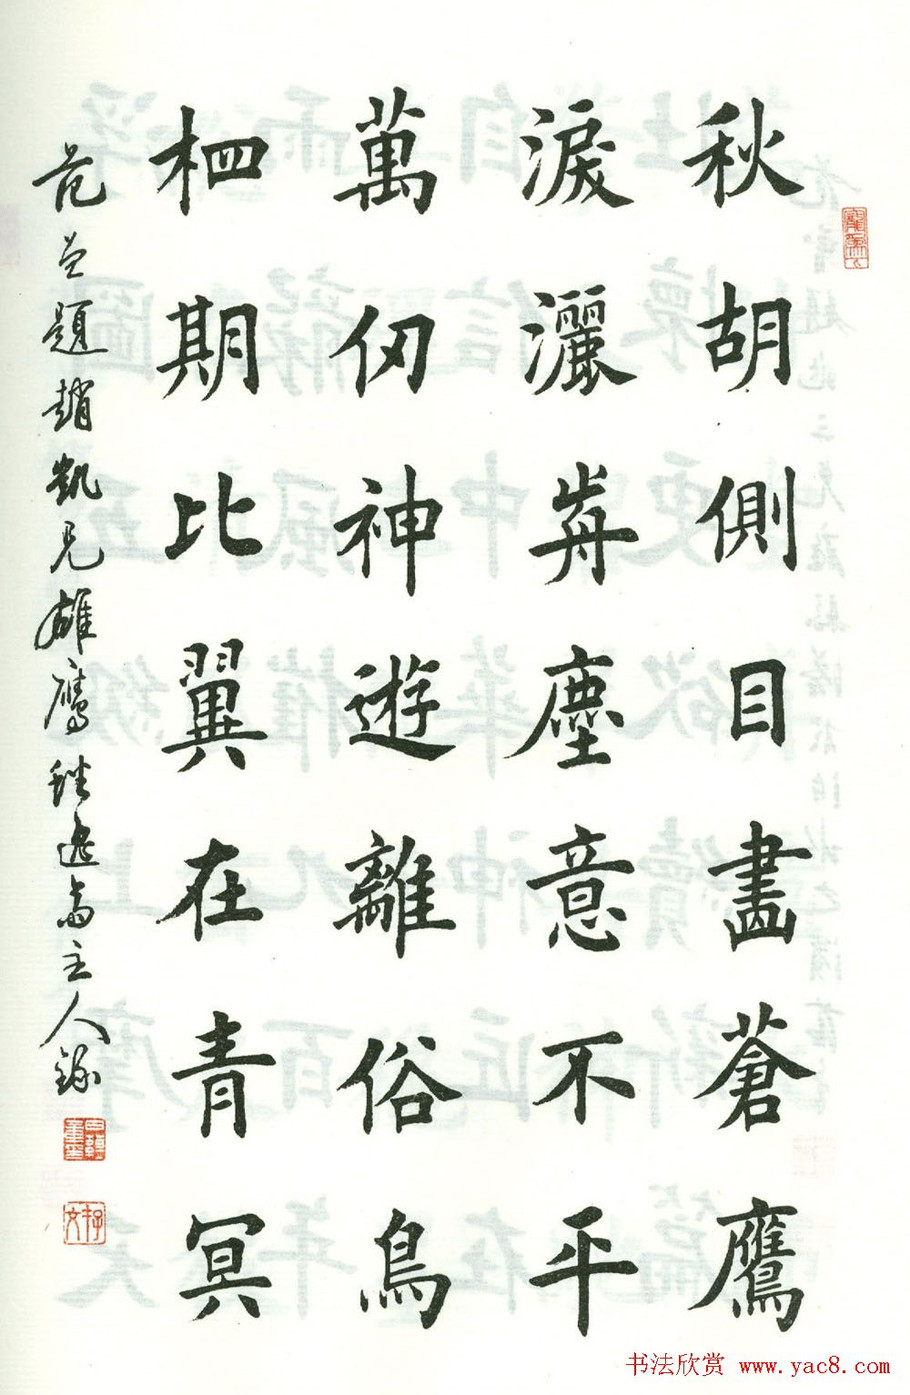 秋胡側目畫蒼鷹
淚灑歬塵意不平
萬仞神遊離俗鳥
相期比翼在青冥
范曾題趙凱兄雄鷹 齋主人錄
书法欣赏 www.yac8.com